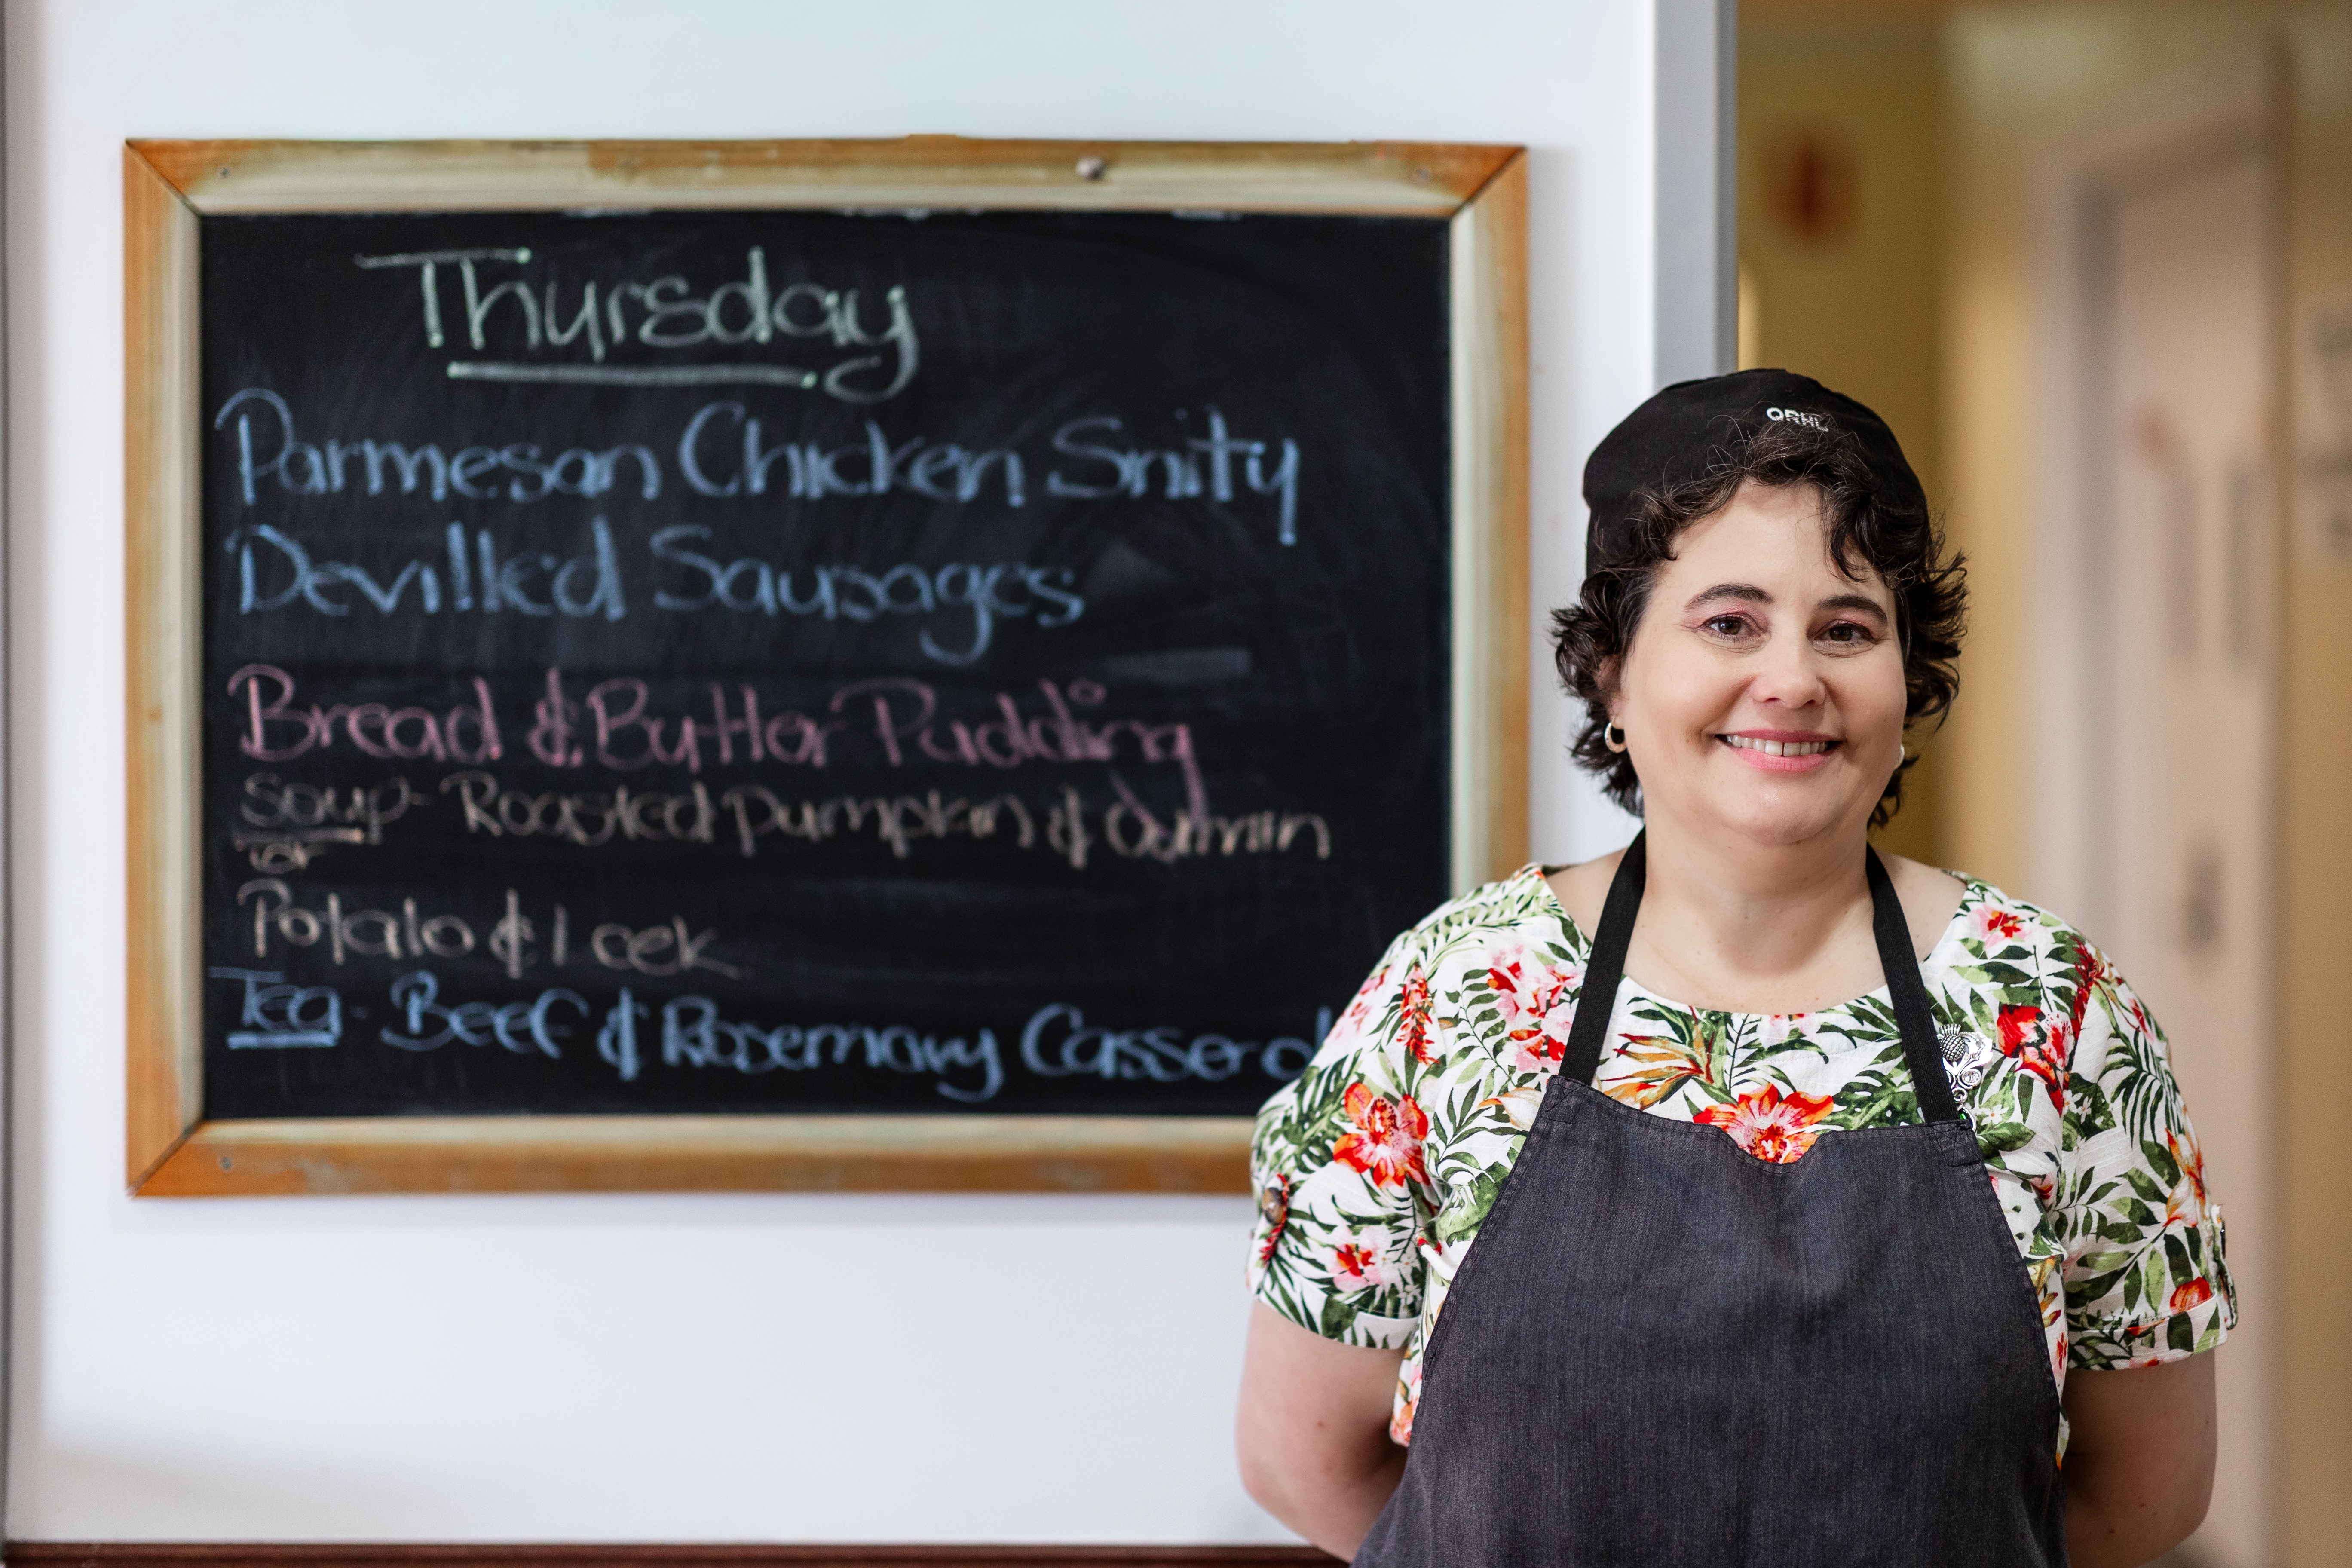 Thursday
Parmesan Chicken Snity
Devilled Sausages
Bread & Butter Pudding
Soup - Roasted Pumpkin & Cumin
or
Potato & Leek
Tea - Beef & Rosemary Casserol
QRHL